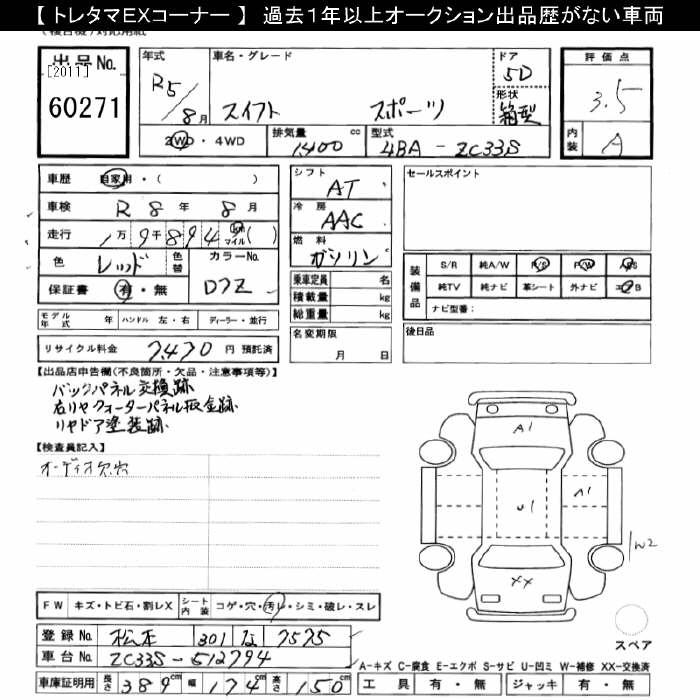 【 トレタマEXコーナー 】 過去1年以上オークション出品歴がない車両
出品No.
[2011]
60271
年式
R5/8月
車名・グレード
スイフト スポーツ
ドア
5D
形状
箱型
評価点
3.5
内装
A
2WD・4WD
排気量
1400 cc
型式
4BA - ZC33S
車歴 自家用・( )
車検 R 8 年 8 月
走行 1万 9千 8 9 4 km マイル ( )
色 レッド 色替
カラーNo. D7Z
保証書 有・無
モデル年式 年 ハンドル 左・右 ディーラー・並行
リサイクル料金 7,470 円 預託済
シフト AT
冷房 AAC
燃料 ガソリン
乗車定員 名
積載量 kg
総重量 kg
名変期限 月 日
セールスポイント
装備品
S/R 純A/W P/S P/W A/S
純TV 純ナビ 革シート 外ナビ エアB
ナビ型番:
後日品
【出品店申告欄(不良箇所・欠品・注意事項等)】
バックパネル交換跡
右リヤクォーターパネル板金跡
リヤドア塗装跡
【検査員記入】
オーディオ欠穴
A1
A1
U1
W2
XX
スペア
FW キズ・トビ石・割レX シート内装 コゲ・穴・汚レ・シミ・破レ・スレ
登録No. 松本 301 な 7575
車台No. ZC33S-512794
車庫証明用 長さ 389cm 幅 174cm 高さ 150cm
A-キズ C-腐食 E-エクボ S-サビ U-凹ミ W-補修 XX-交換済
工具 有・無 ジャッキ 有・無